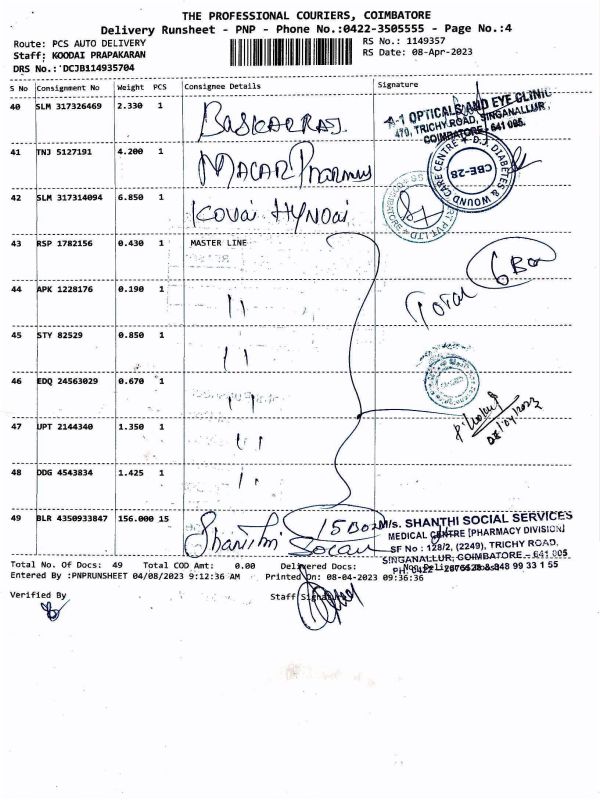 THE PROFESSIONAL COURIERS, COIMBATORE
Delivery Runsheet - PNP - Phone No.:0422-3505555 - Page No.:4
Route: PCS AUTO DELIVERY
RS No.: 1149357
Staff: KOODAI PRAPAKARAN
RS Date: 08-Apr-2023
DRS No.: DCJB114935704
S No Consignment No Weight PCS Consignee Details Signature
40 SLM 317326469 2.330 1 Baskarraj
A-1 OPTICALS AND EYE CLINIC
470, TRICHY ROAD, SINGANALLUR,
COIMBATORE - 641 005.
41 TNJ 5127191 4.200 1
DIABETES & WOUND CARE CENTRE
CBE-28
42 SLM 317314094 6.850 1 Kovai Hyndai
43 RSP 1782156 0.430 1 MASTER LINE
Total 6 Box
44 APK 1228176 0.190 1 "
45 STY 82529 0.850 1 "
46 EDQ 24563029 0.670 1 "
08/04/2023
47 UPT 2144340 1.350 1 "
48 DDG 4543834 1.425 1 "
49 BLR 4350933847 156.000 15 Shanthi Social 15 Box
M/s. SHANTHI SOCIAL SERVICES
MEDICAL CENTRE [PHARMACY DIVISION]
SF No : 128/2, (2249), TRICHY ROAD,
SINGANALLUR, COIMBATORE - 641 005
Total No. Of Docs: 49 Total COD Amt: 0.00 Delivered Docs:
Entered By :PNPRUNSHEET 04/08/2023 9:12:36 AM Printed On: 08-04-2023 09:36:36
Verified By
Staff Signature